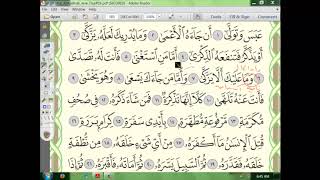 Adobe Reader
Fill & Sign Comment
عَبَسَ وَتَوَلَّىٰٓ ١ أَن جَآءَهُ ٱلْأَعْمَىٰ ٢ وَمَا يُدْرِيكَ لَعَلَّهُۥ يَزَّكَّىٰٓ ٣
أَوْ يَذَّكَّرُ فَتَنفَعَهُ ٱلذِّكْرَىٰٓ ٤ أَمَّا مَنِ ٱسْتَغْنَىٰ ٥ فَأَنتَ لَهُۥ تَصَدَّىٰ
٦ وَمَا عَلَيْكَ أَلَّا يَزَّكَّىٰ ٧ وَأَمَّا مَن جَآءَكَ يَسْعَىٰ ٨ وَهُوَ يَخْشَىٰ ٩
فَأَنتَ عَنْهُ تَلَهَّىٰ ١٠ كَلَّآ إِنَّهَا تَذْكِرَةٌ ١١ فَمَن شَآءَ ذَكَرَهُۥ ١٢ فِى صُحُفٍ
مُّكَرَّمَةٍ ١٣ مَّرْفُوعَةٍ مُّطَهَّرَةٍۭ ١٤ بِأَيْدِى سَفَرَةٍ ١٥ كِرَامٍۭ بَرَرَةٍ ١٦
قُتِلَ ٱلْإِنسَٰنُ مَآ أَكْفَرَهُۥ ١٧ مِنْ أَىِّ شَىْءٍ خَلَقَهُۥ ١٨ مِن نُّطْفَةٍ
خَلَقَهُۥ فَقَدَّرَهُۥ ١٩ ثُمَّ ٱلسَّبِيلَ يَسَّرَهُۥ ٢٠ ثُمَّ أَمَاتَهُۥ فَأَقْبَرَهُۥ ٢١ ثُمَّ إِذَا
6:45 AM